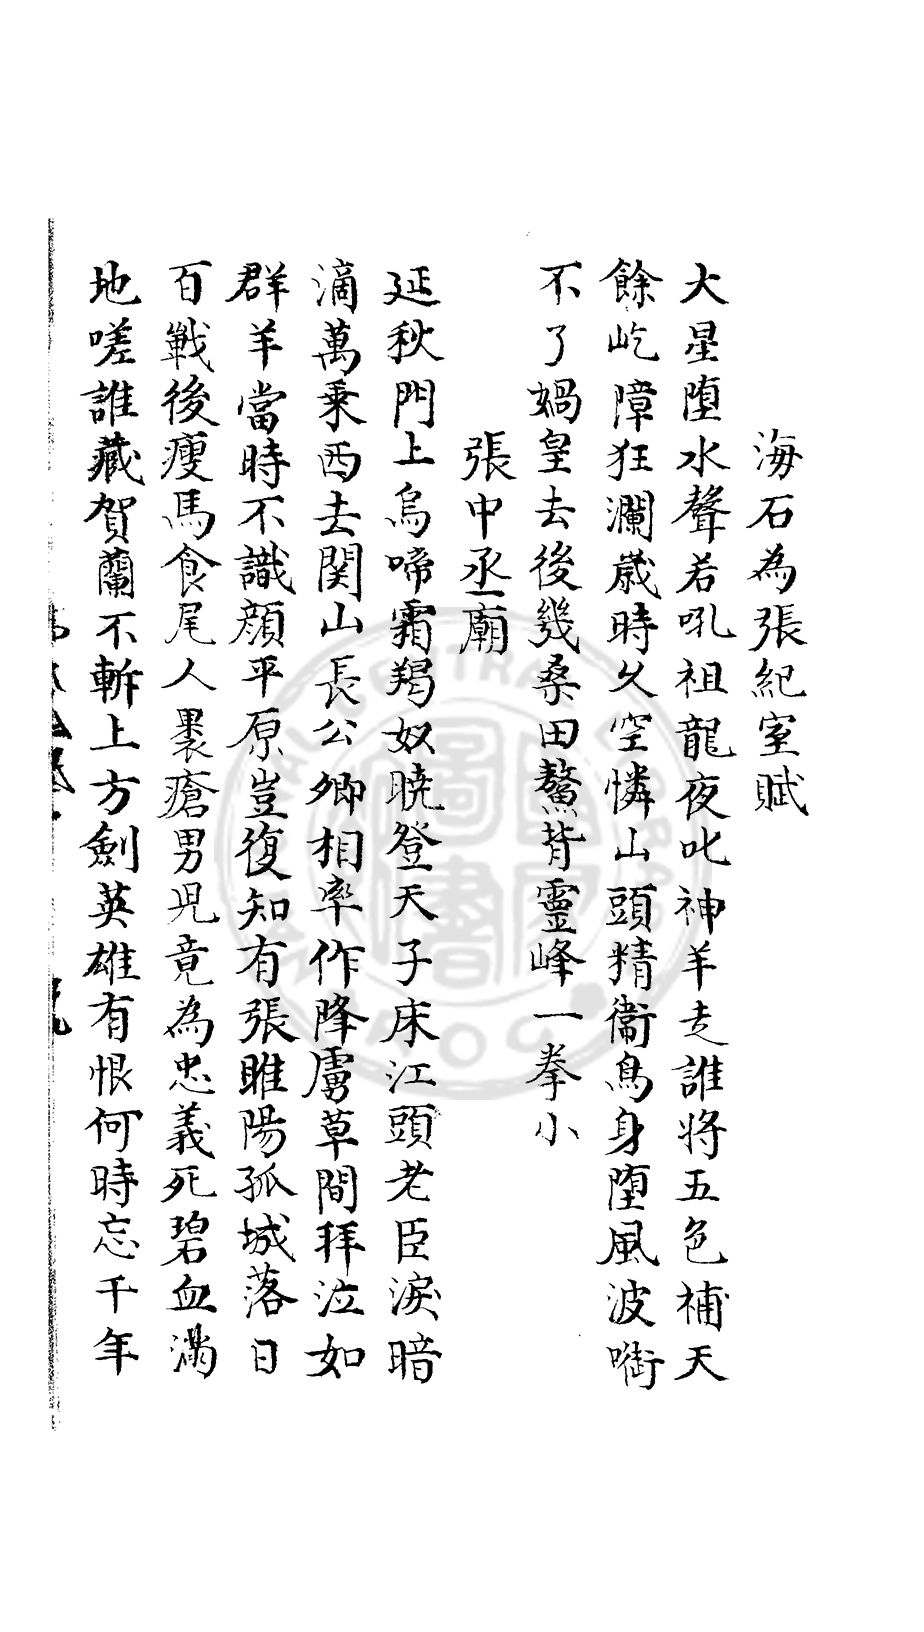 海石為張紀室賦
大星堕水聲若吼祖龍夜叱神羊走誰將五色補天
餘屹障狂瀾歲時久空憐山頭精衞鳥身堕風波啣
不了媧皇去後幾桑田鰲背靈峰一拳小
張中丞廟
延秋門上烏啼霜羯奴曉登天子床江頭老臣淚暗
滴萬乘西去関山長公卿相率作降虜草間拜泣如
群羊當時不識顔平原豈復知有張睢陽孤城落日
百戰後瘦馬食尾人裹瘡男児竟為忠義死碧血满
地嗟誰藏賀蘭不斬上方劍英雄有恨何時忘千年